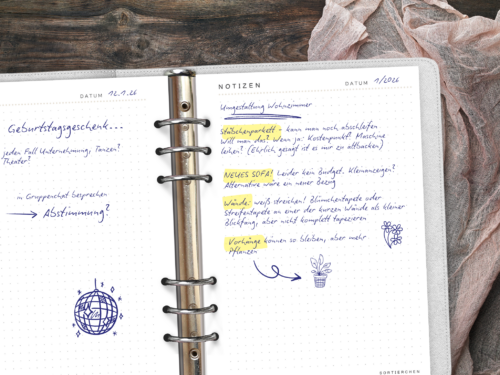 DATUM 12.1.26
Geburtstagsgeschenk...
jeden Fall Unternehmung, Tanzen?
Theater?
in Gruppenchat besprechen
Abstimmung?
NOTIZEN
DATUM 1/2026
Umgestaltung Wohnzimmer
Stäbchenparkett - kann man noch abschleifen
Will man das? Wenn ja: Kostenpunkt? Maschine
leihen? (Ehrlich gesagt ist es mir zu altbacken)
NEUES SOFA! Leider kein Budget. Kleinanzeigen?
Alternative wäre ein neuer Bezug
Wände: weiß streichen! Blümchentapete oder
Streifentapete an einer der kurzen Wände als kleiner
Blickfang, aber nicht komplett tapezieren
Vorhänge können so bleiben, aber mehr
Pflanzen
SORTIERCHEN